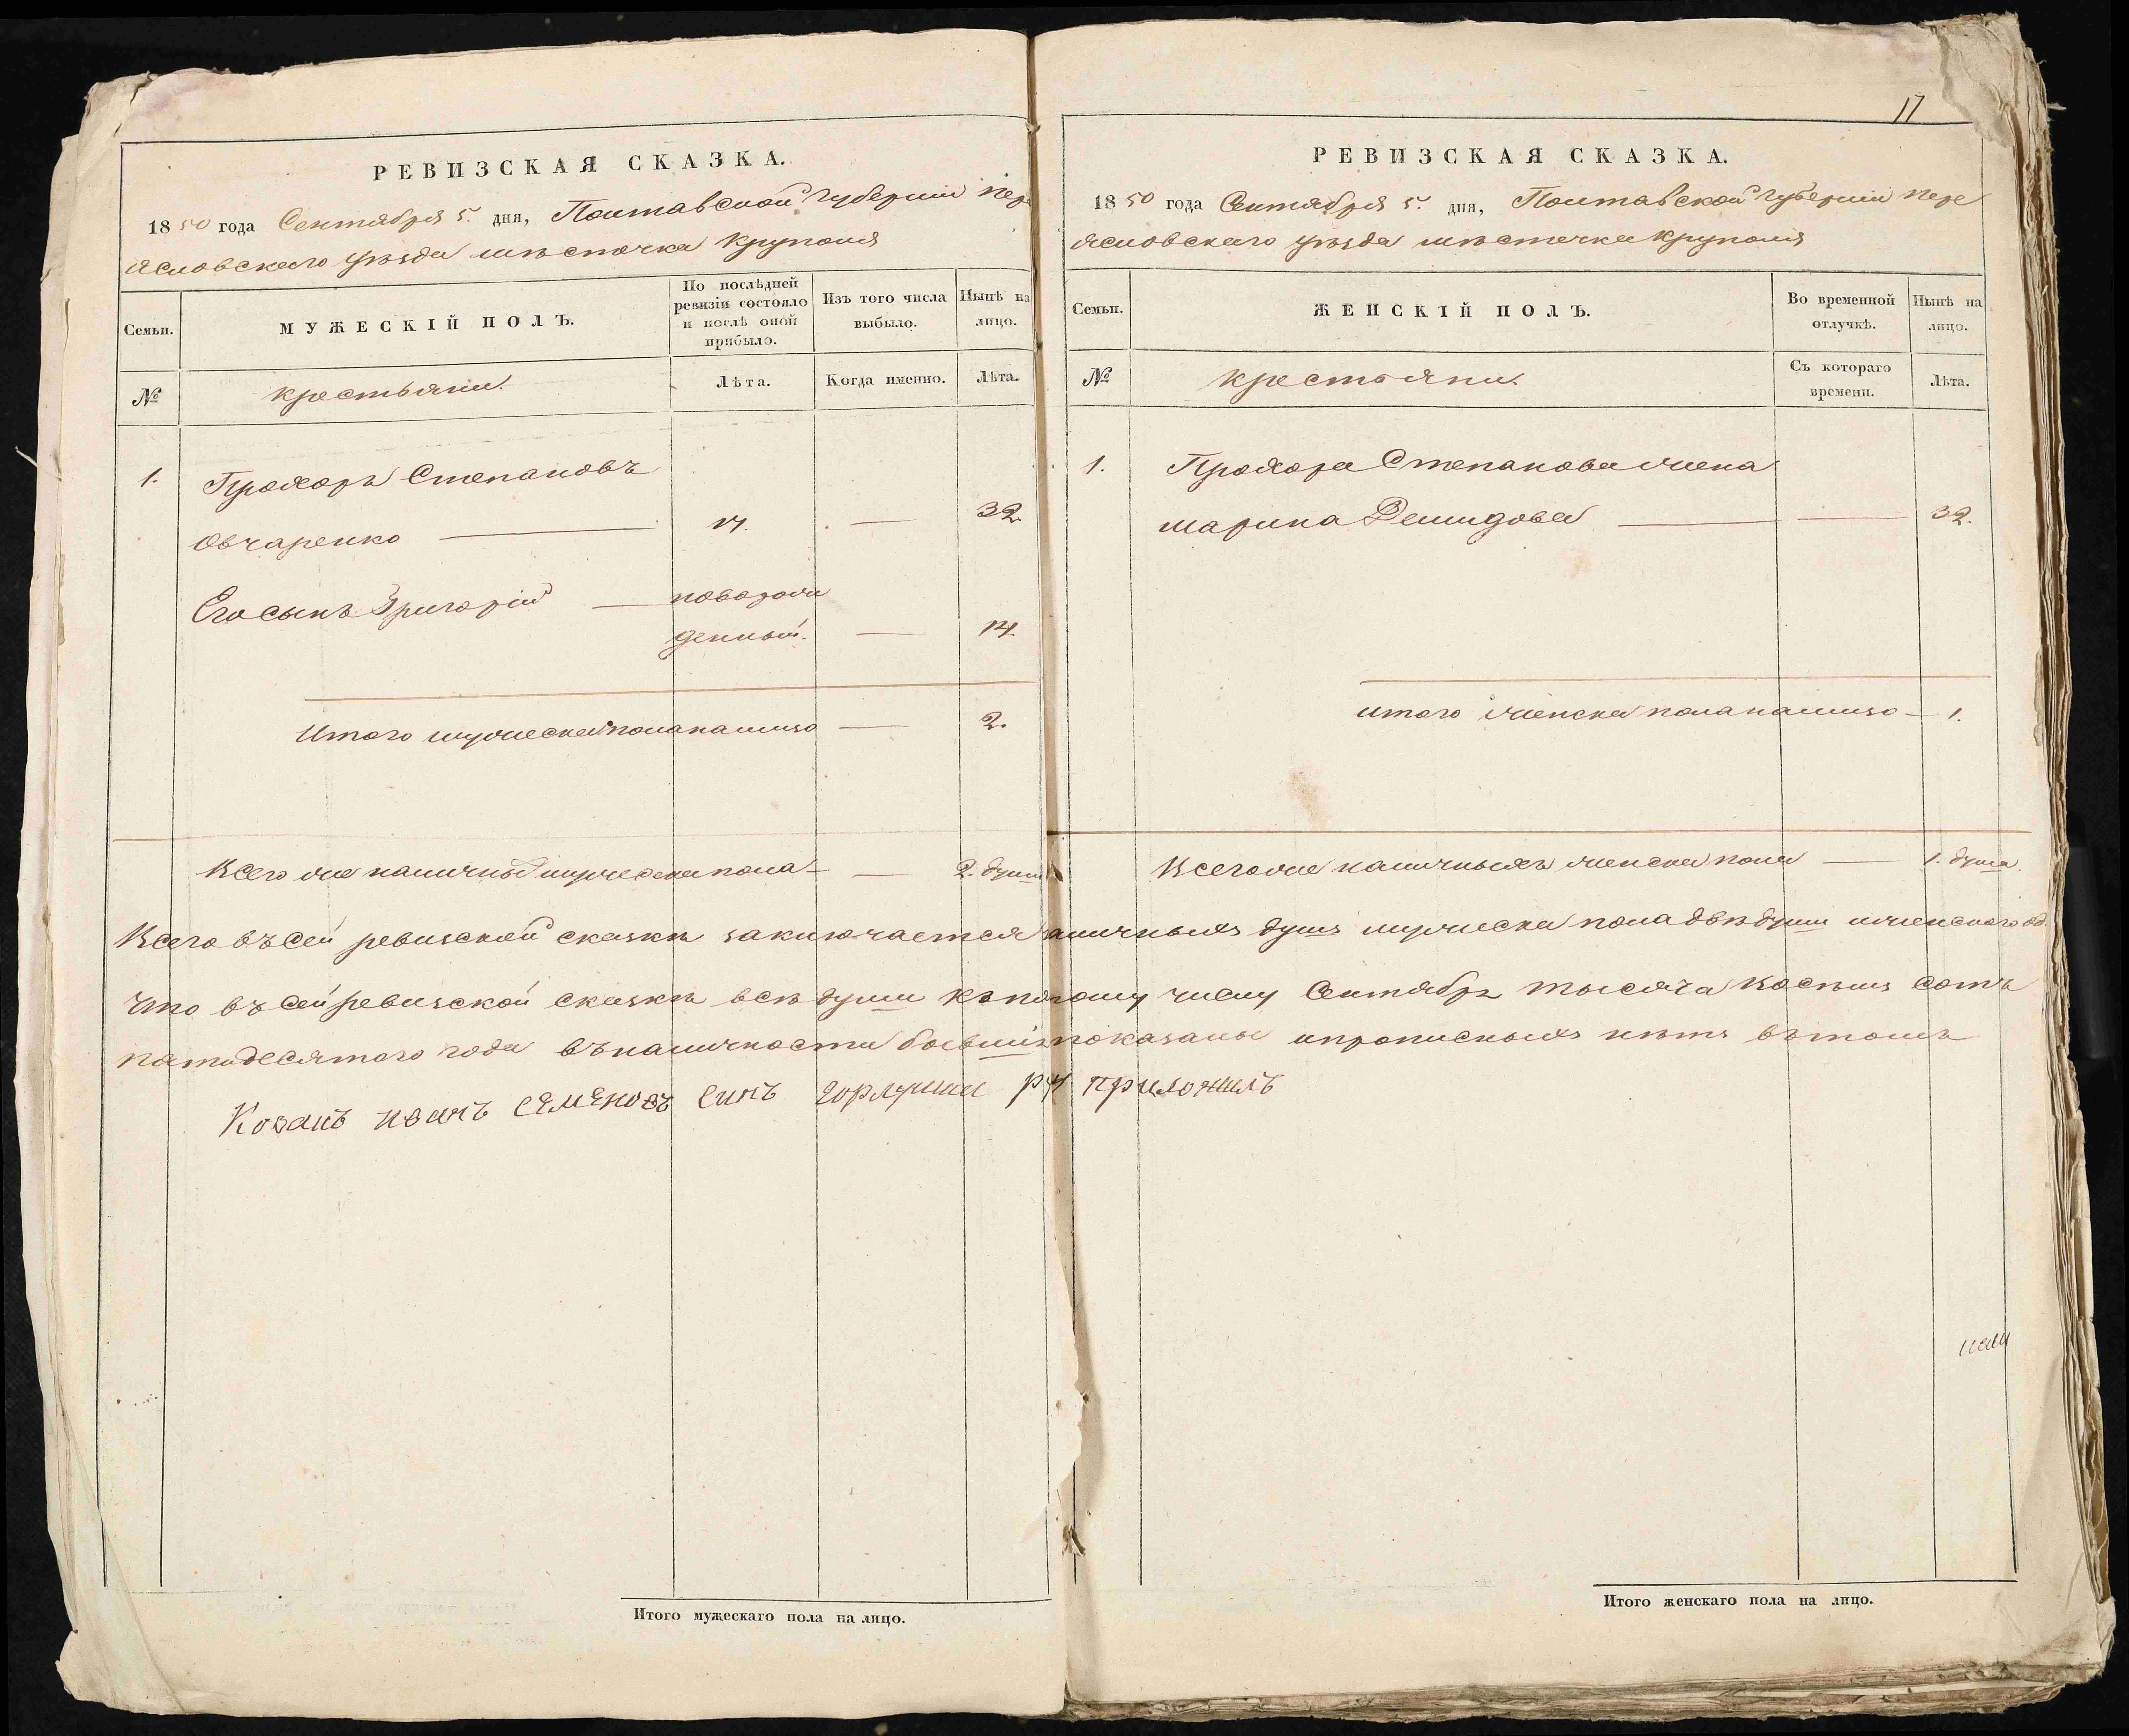 17
РЕВИЗСКАЯ СКАЗКА.
1850 года Сентября 5. дня, Полтавской губерніи пере
яславскаго уѣзда мѣстечка Круполя
Семьи.
МУЖЕСКІЙ ПОЛЪ.
По послѣдней
ревизіи состояло
и послѣ оной
прибыло.
Изъ того числа
выбыло.
Нынѣ на
лицо.
№
крестьяни.
Лѣта.
Когда именно.
Лѣта.
1. Прохоръ Степановъ
Овчаренко — — 32
Его сынъ Григорій — новорож
денный. — 14.
Итого мужеска пола налицо — 2.
Всего же наличныхъ мужеска пола — — 2. души
РЕВИЗСКАЯ СКАЗКА.
1850 года Сентября 5. дня, Полтавской губерніи пере
яславскаго уѣзда мѣстечка Круполя
Семьи.
ЖЕНСКІЙ ПОЛЪ.
Во временной
отлучкѣ.
Нынѣ на
лицо.
№
крестьяни.
Съ котораго
времени.
Лѣта.
1. Прохора Степанова жена
марина Демидова — — 32.
итого женска пола налицо — 1.
Всего же наличныхъ женска пола — 1. душа.
Всего въ сей ревизской сказки заключается наличныхъ душъ мужеска пола двѣ души и женскаго од.
что въ сей ревизской сказкѣ всѣ души къ пятому числу Сентябрѣ тысяча восемъ сотъ
пятидесятого года въ наличности бывшіе показаны и прописныхъ нѣтъ в томъ
Козакъ иванъ семеновъ синъ руку приложилъ
Итого мужескаго пола на лицо.
Итого женскаго пола на лицо.